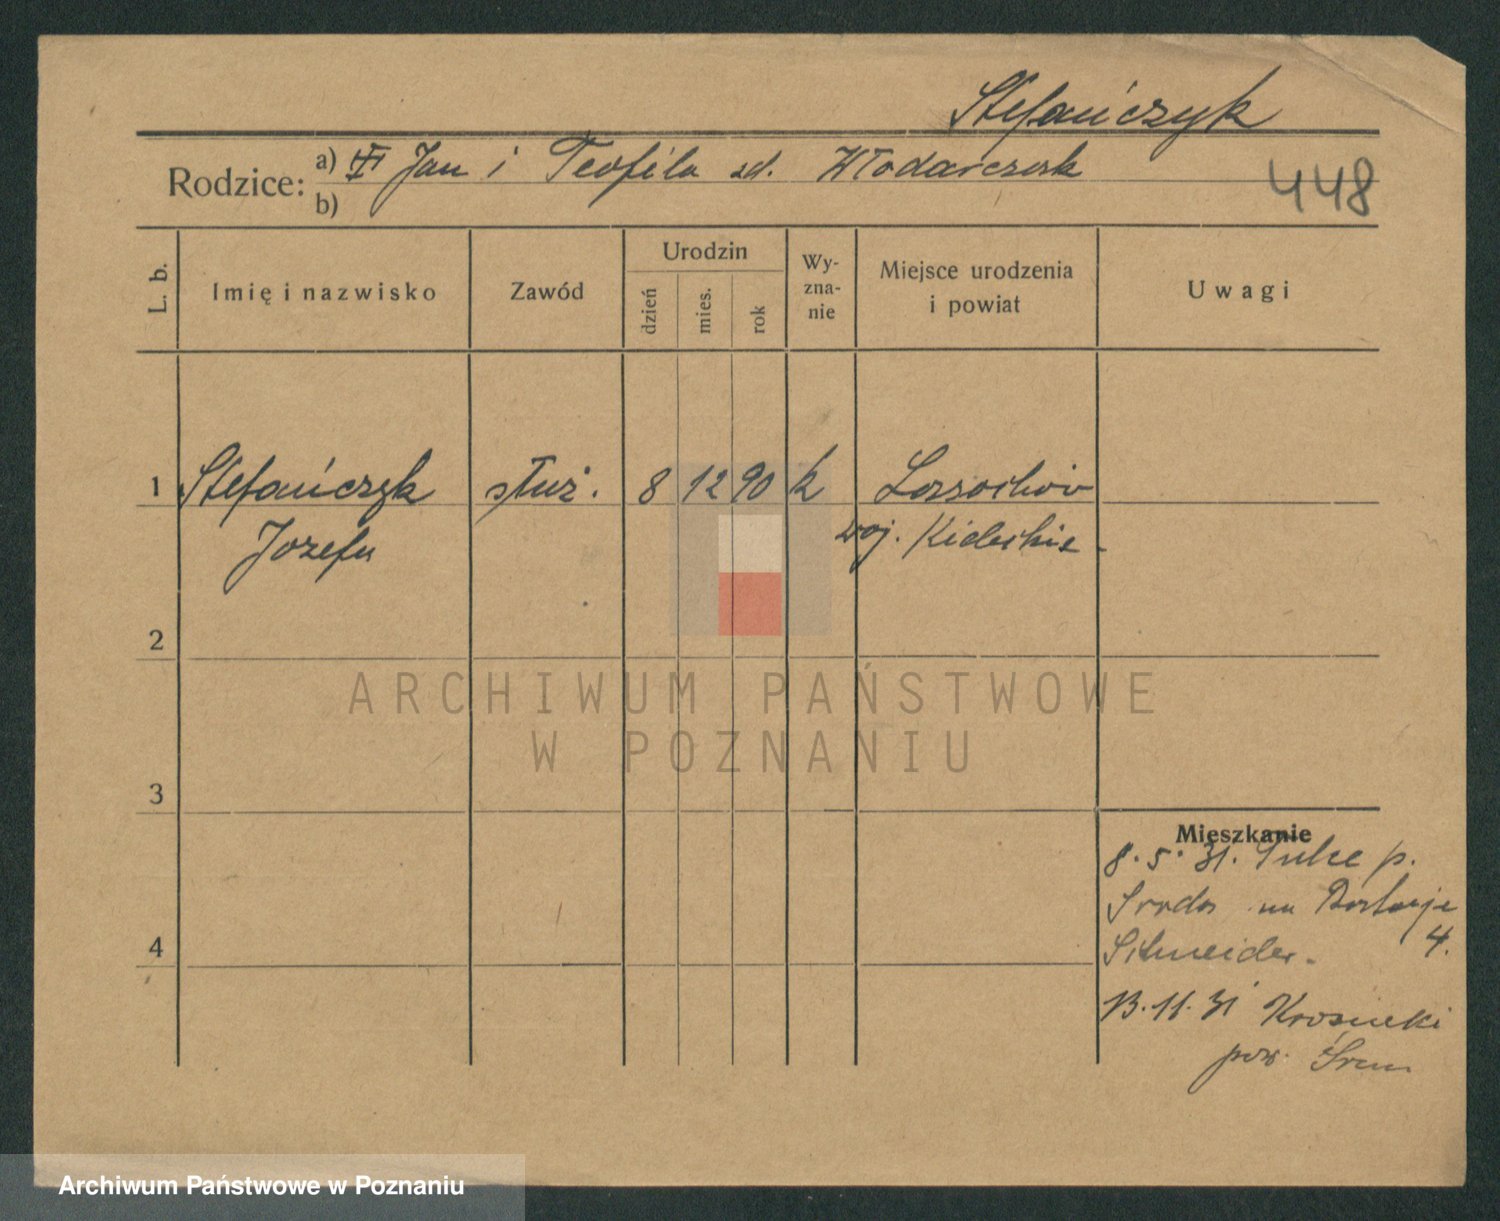 Stefańczyk
Rodzice: a) Jan i Teofila zd. Włodarczyk
b)
448
L. b.
Imię i nazwisko
Zawód
Urodzin
dzień
mies.
rok
Wy-
zna-
nie
Miejsce urodzenia
i powiat
Uwagi
1 Stefańczyk służ. 8 12 90 k
Józefa woj. Kieleckie
2
ARCHIWUM PAŃSTWOWE
W POZNANIU
3
Mieszkanie
8.5.31. p.
Środa
Schneider. 4.
13.11.31
pow. Śrem
4
Archiwum Państwowe w Poznaniu